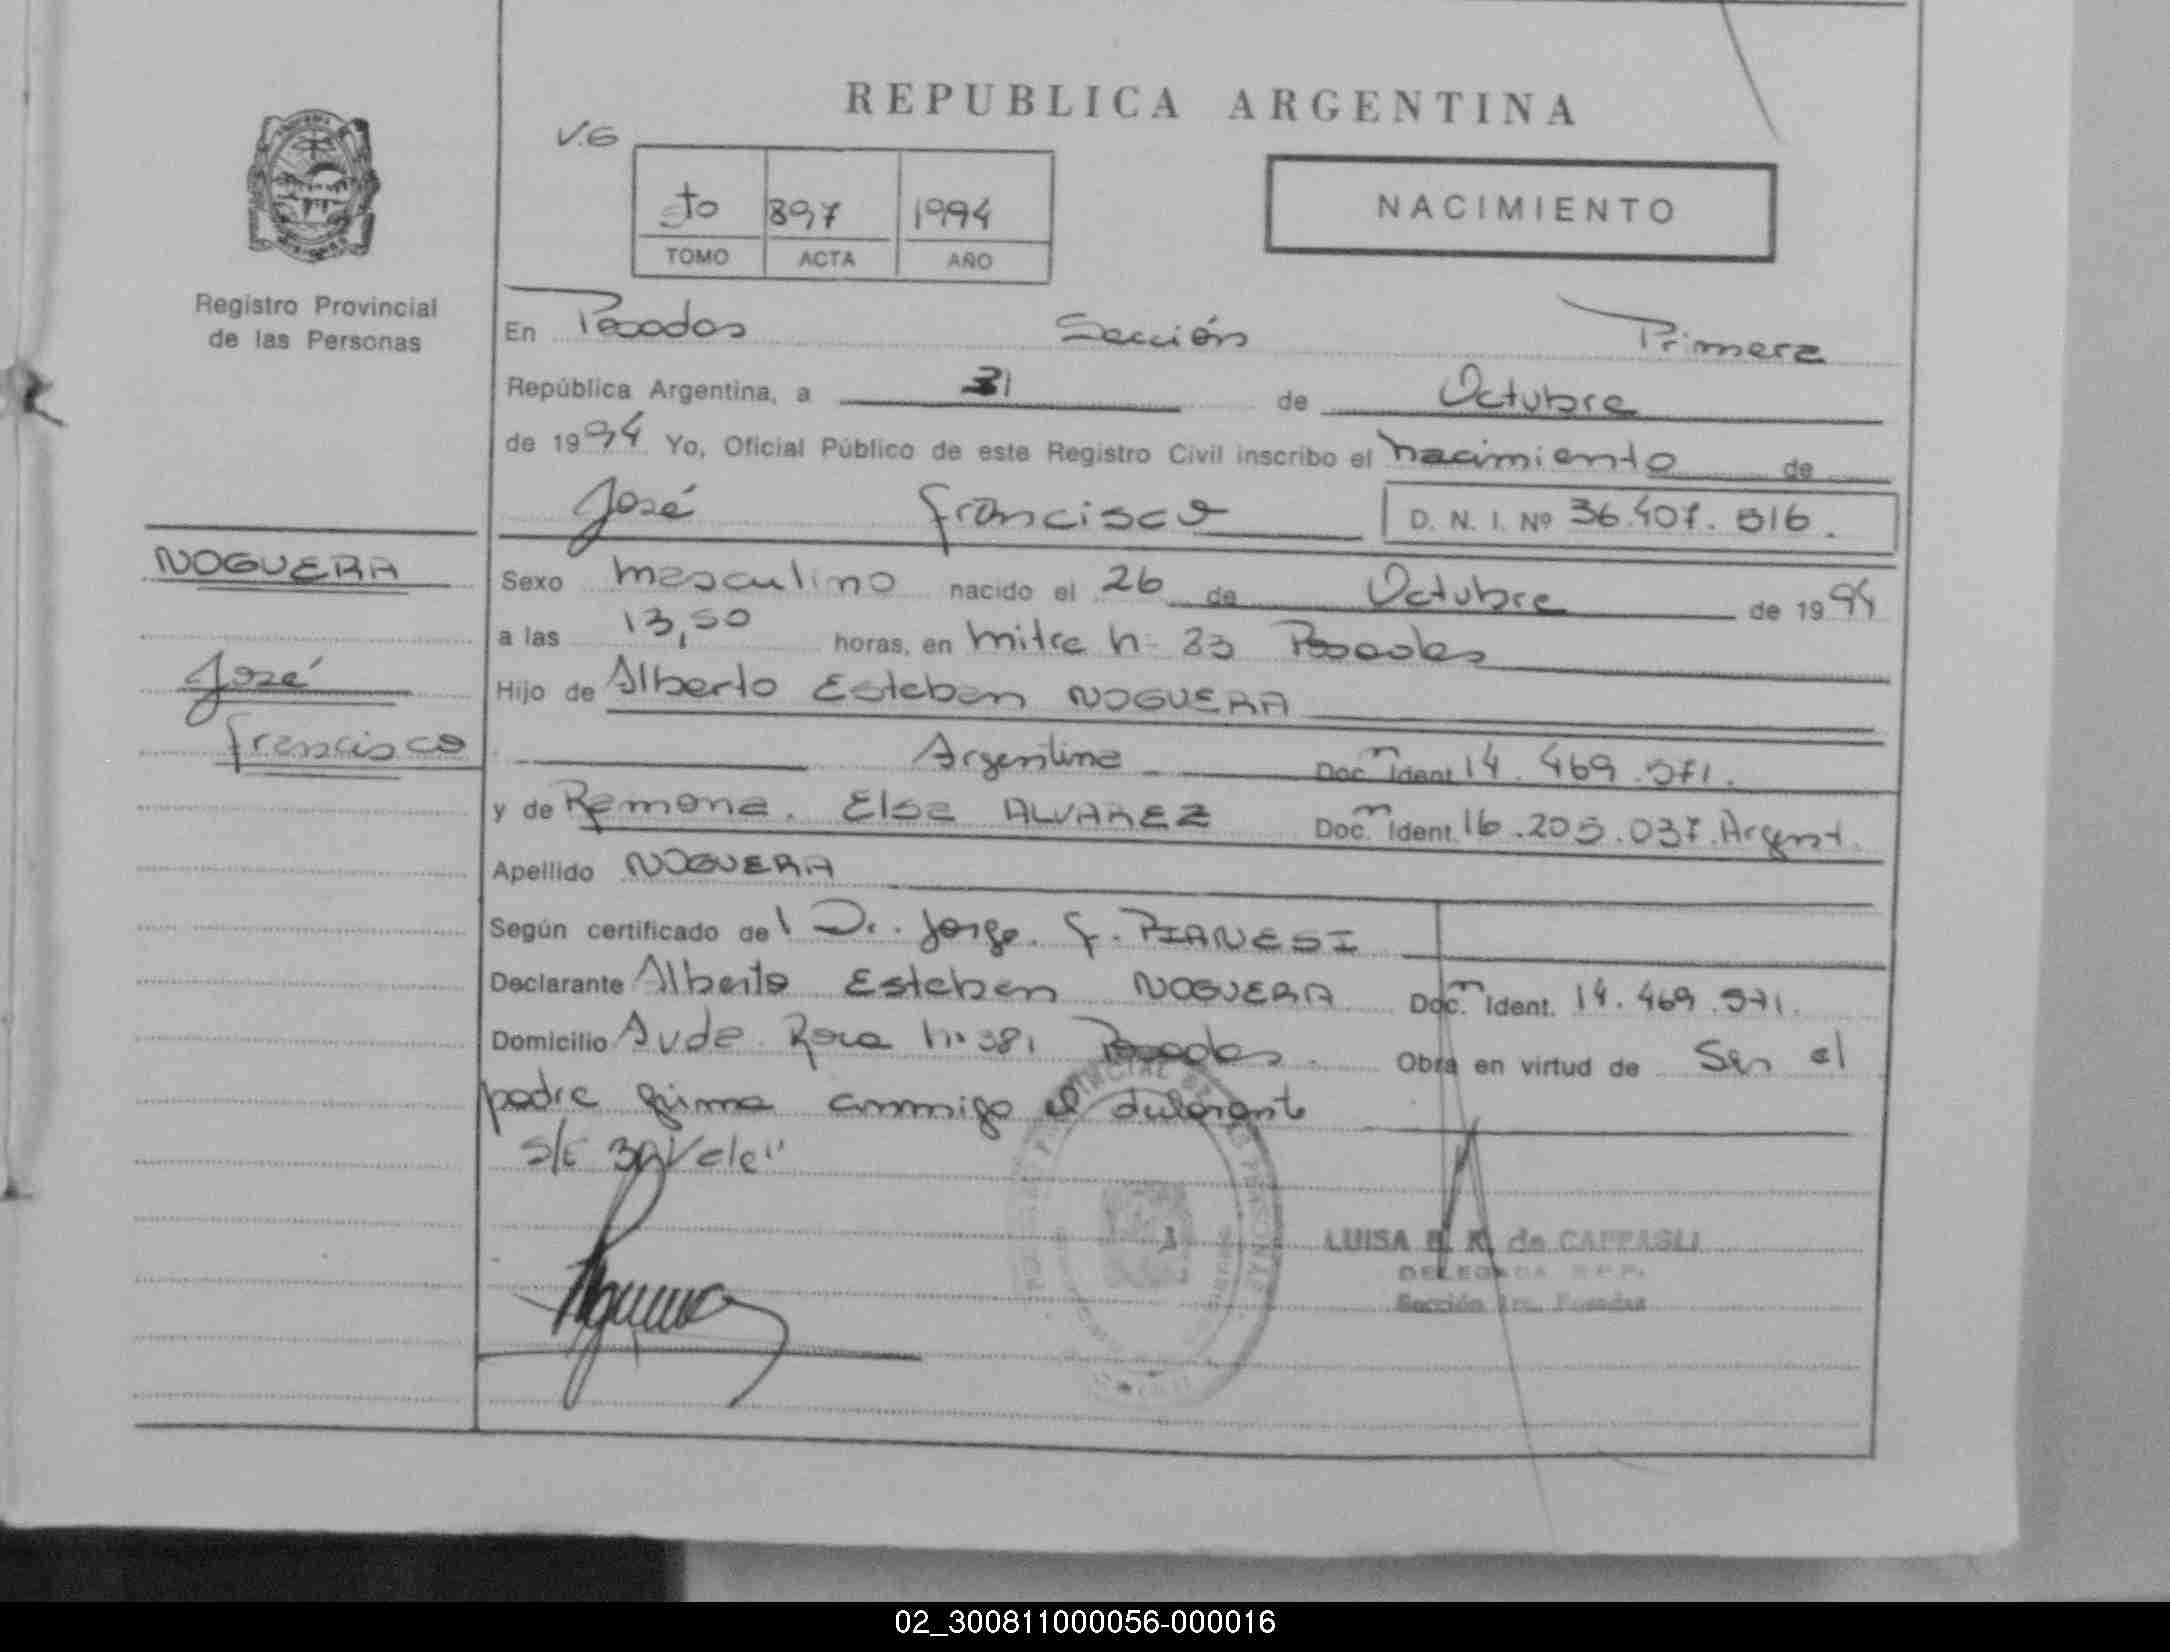 REPUBLICA ARGENTINA
V.G
897 1994
TOMO ACTA AÑO
NACIMIENTO
Registro Provincial
de las Personas
En Posadas Sección Primera
República Argentina, a 31 de Octubre
de 1994 Yo, Oficial Público de este Registro Civil inscribo el nacimiento de
José Francisco D. N. I. Nº 36.407.516.
NOGUERA
José
Francisco
Sexo masculino nacido el 26 de Octubre de 1994
a las 13,50 horas, en Mitre nº 23 Posadas
Hijo de Alberto Esteban NOGUERA
Argentina Doc. Ident. 14.469.571.
y de Ramona. Elsa ALVAREZ Doc. Ident. 16.205.037. Argent.
Apellido NOGUERA
Según certificado del Dr. Jorge. F. PIANESI
Declarante Alberto Esteban NOGUERA Doc. Ident. 14.469.571.
Domicilio Avda. Roca nº 381 Posadas. Obra en virtud de Ser el
padre firma conmigo el declarante
S/E 31 Vale"
LUISA de
DELEGADA R.P.P.
Sección 1ra. Posadas
02_300811000056-000016